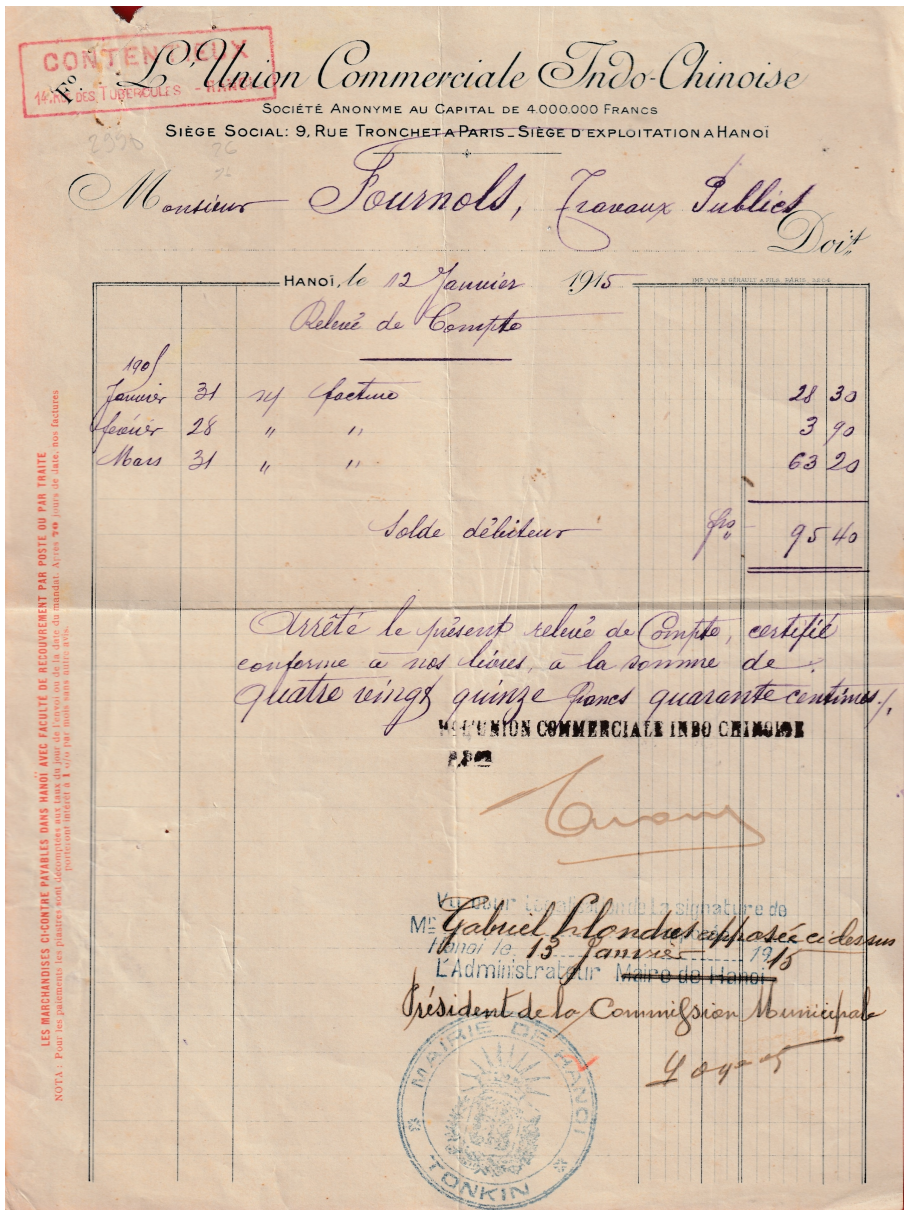 CONTENTIEUX
14, R. DES TUBERCULES - HANOI
Fo.
L'Union Commerciale Indo-Chinoise
SOCIÉTÉ ANONYME AU CAPITAL DE 4.000.000 FRANCS
SIÈGE SOCIAL: 9, RUE TRONCHET A PARIS _ SIÈGE D'EXPLOITATION A HANOÏ
2998
Monsieur Fournols, Travaux Publics
Doit
HANOÏ, le 12 Janvier 1915
Relevé de Compte
Janvier 31 n/ facture 28 30
février 28 " " 3 90
Mars 31 " " 63 20
Solde débiteur frs 95 40
Arrêté le présent relevé de Compte, certifié
conforme à nos livres, à la somme de
quatre vingt quinze francs quarante centimes./.
L'UNION COMMERCIALE INDO CHINOISE
Vu pour légalisation de la signature de
Mr Gabriel apposée ci dessus
Hanoi le 13 Janvier 1915
L'Administrateur Maire de Hanoi
Président de la Commission Municipale
MAIRIE DE HANOI
TONKIN
LES MARCHANDISES CI-CONTRE PAYABLES DANS HANOÏ AVEC FACULTÉ DE RECOUVREMENT PAR POSTE OU PAR TRAITE
NOTA : Pour les paiements les piastres sont décomptées aux taux du jour de l'envoi ou de la date du mandat. Après 90 jours de date, nos factures
porteront intérêt à 1 o/o par mois sans autre avis.